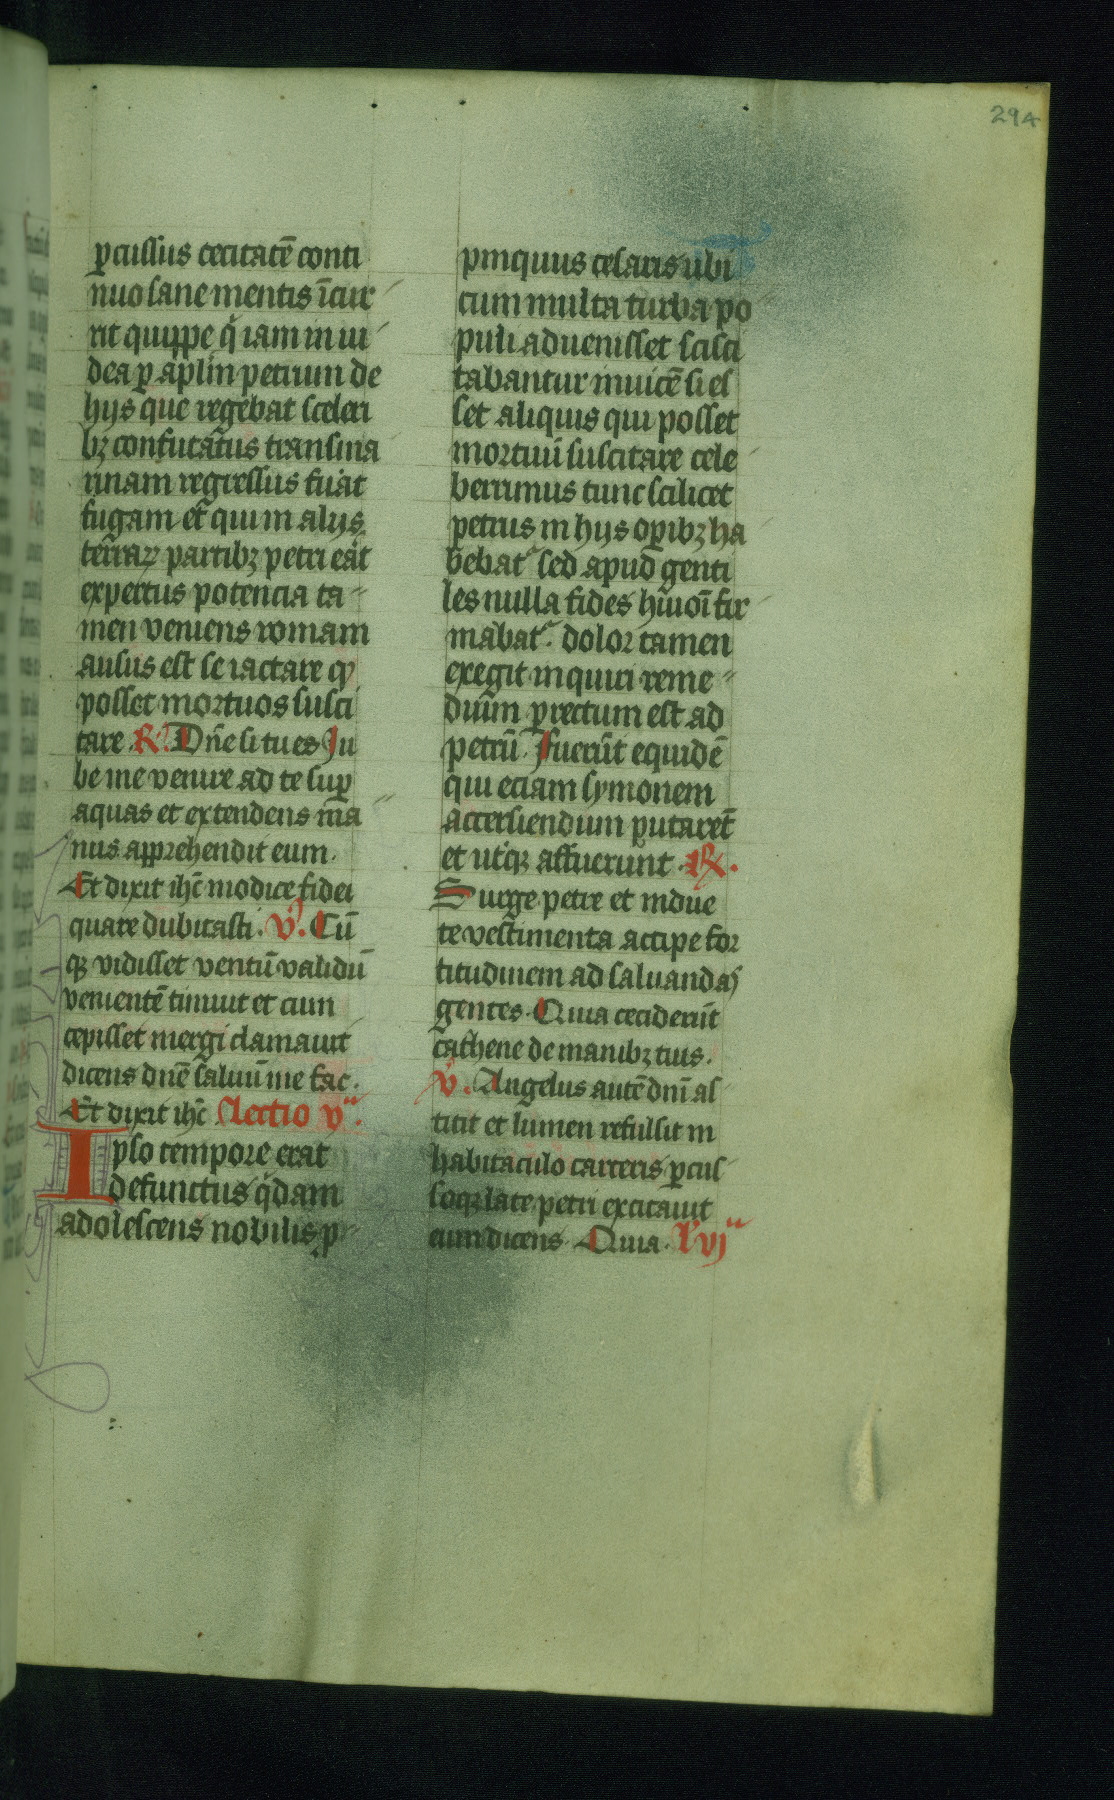 294
ꝑcussus cecitatē conti
nuo sane mentis īcur
rit quippe q̄ iam in iu
dea ꝑ aplm̄ petrum de
hijs que regebat sceleri
bꝫ confutatus transma
rinam regressus fuāt
fugam et qui in alijs
terraꝝ partibꝫ petri eāt
expertus potencia ta
men veniens romam
ausus est se iactare ꝙ
posset mortuos susci
tare. R. Dn̄e si tu es Ju
be me venire ad te suꝑ
aquas et extendens ma
nus apprehendit eum.
Et dixit ihc̄ modice fidei
quare dubitasti. V. Cū
qꝫ vidisset ventū validū
venientē timuit et cum
cepisset mergi clamauit
dicens dn̄e saluū me fac.
Et dixit ihc̄ Lectio v.
Ipso tempore erat
defunctus q̄dam
adolescens nobilis ꝓ
pinquus cesaris ubi
cum multa turba po
puli aduenisset scisci
tabantur inuicē si es
set aliquis qui posset
mortuū suscitare cele
berrimus tunc scilicet
petrus in hijs oꝑibꝫ ha
bebat᷑ sed apud genti
les nulla fides hm̄oi fir
mabat᷑. dolor tamen
exegit inquiri reme
dium ꝑrectum est ad
petrū. Fuerūt equidē
qui eciam symonem
accersiendum putarēt
et utꝑqꝫ affuerunt. R.
Surge petre et indue
te vestimenta accipe for
titudinem ad saluandas
gentes. Quia ceciderūt
cathene de manibꝫ tuis.
V. Angelus autē dn̄i as
titit et lumen refulsit in
habitaculo carceris ꝑcus
soqꝫ late petri excitauit
eum dicens. Quia. L vj